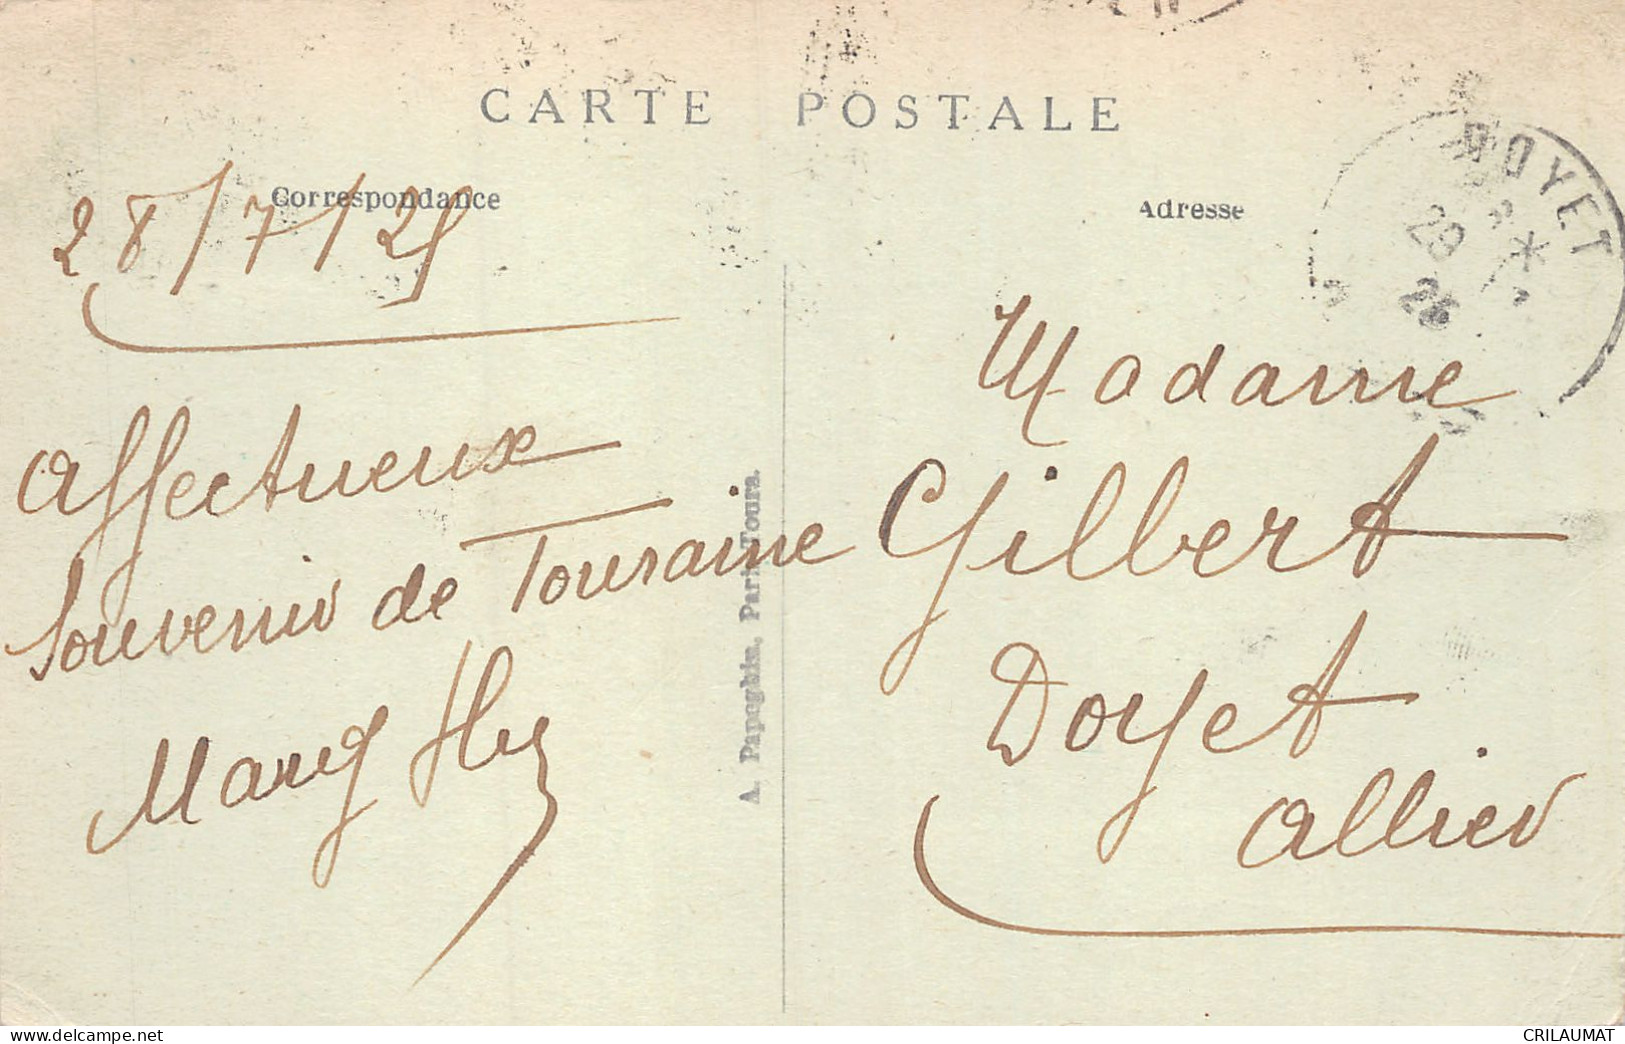 CARTE POSTALE
Correspondance
28/7/25
Affectueux
Souvenir de Touraine
A. Papeghin, Paris-Tours.
Adresse
DOYET
29
25
Madame
Gilbert
Doyet
Allier
CRILAUMAT